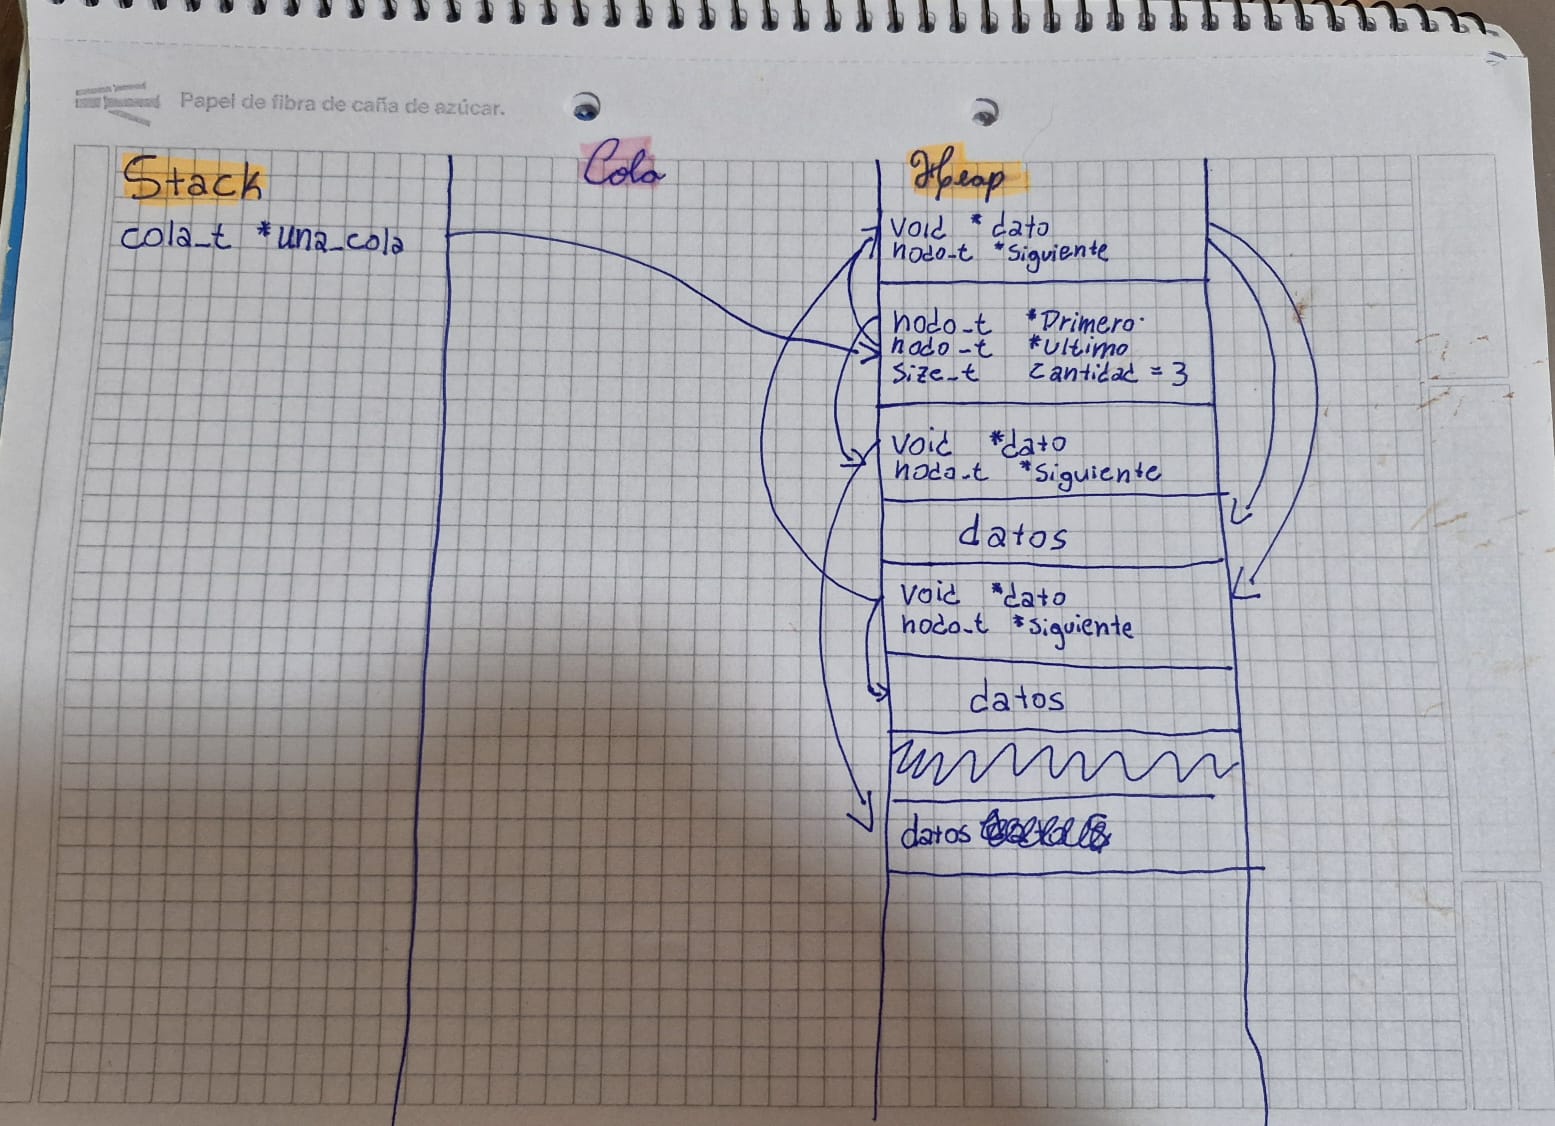 Papel de fibra de caña de azúcar.
Stack
cola_t *una_cola
Cola
Heap
void * dato
nodo_t *Siguiente
nodo_t *Primero
nodo_t *Ultimo
Size_t Cantidad = 3
void *dato
nodo_t *Siguiente
datos
void *dato
nodo_t *Siguiente
datos
datos